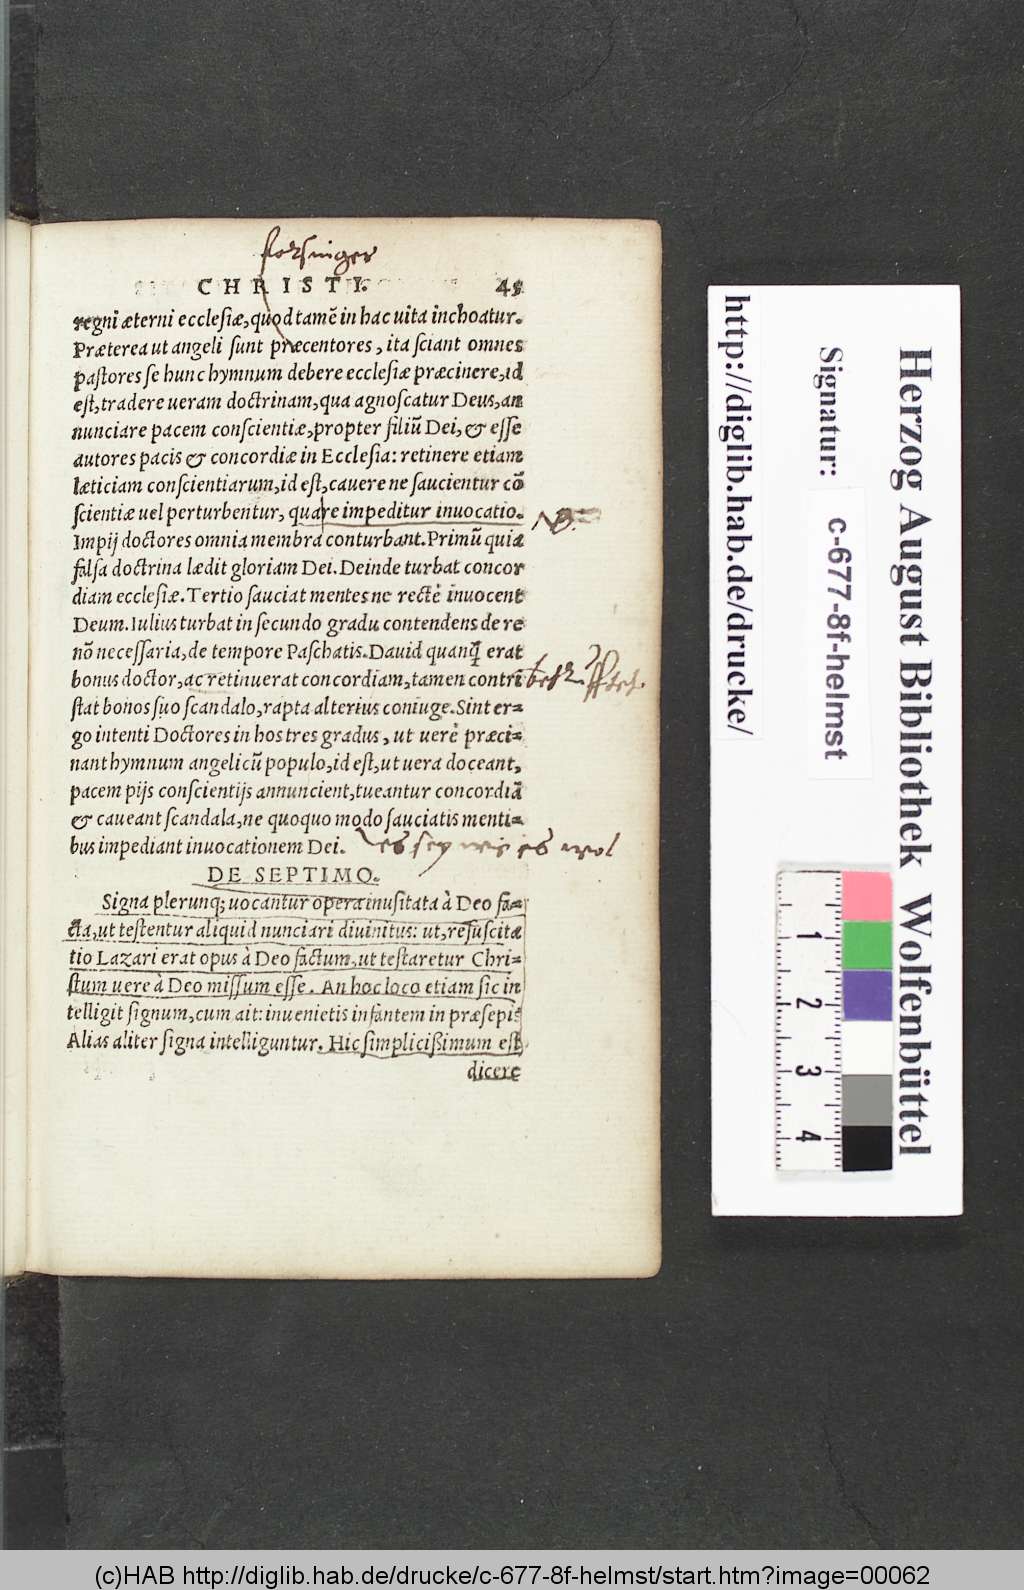 forsinger
CHRISTI. 45
regni æterni ecclesiæ, quod tamẽ in hac uita inchoatur.
Præterea ut angeli sunt præcentores, ita sciant omnes
pastores se hunc hymnum debere ecclesiæ præcinere, id
est, tradere ueram doctrinam, qua agnoscatur Deus, an
nunciare pacem conscientiæ, propter filiũ Dei, & esse
autores pacis & concordiæ in Ecclesia: retinere etiam
læticiam conscientiarum, id est, cauere ne saucientur cõ
scientiæ uel perturbentur, quare impeditur inuocatio.
NB.
Impij doctores omnia membra conturbant. Primũ quia
falsa doctrina lædit gloriam Dei. Deinde turbat concor
diam ecclesiæ. Tertio sauciat mentes ne rectè inuocent
Deum. Iulius turbat in secundo gradu contendens de re
nõ necessaria, de tempore Paschatis. Dauid quanq̃ erat
bonus doctor, ac retinuerat concordiam, tamen contri
stat bonos suo scandalo, rapta alterius coniuge. Sint er=
go intenti Doctores in hos tres gradus, ut uerè præci=
nant hymnum angelicũ populo, id est, ut uera doceant,
pacem pijs conscientijs annuncient, tueantur concordiã
& caueant scandala, ne quoquo modo sauciatis menti=
bus impediant inuocationem Dei.
es sey wie es wol
DE SEPTIMO.
Signa plerunq; uocantur opera inusitata à Deo fa=
cta, ut testentur aliquid nunciari diuinitus: ut, resuscita
tio Lazari erat opus à Deo factum, ut testaretur Chri=
stum uere à Deo missum esse. An hoc loco etiam sic in
telligit signum, cum ait: inuenietis infantem in præsepi:
Alias aliter signa intelliguntur. Hic simplicißimum est
dicere
http://diglib.hab.de/drucke/
Signatur: c-677-8f-helmst
Herzog August Bibliothek Wolfenbüttel
1
2
3
4
(c)HAB http://diglib.hab.de/drucke/c-677-8f-helmst/start.htm?image=00062